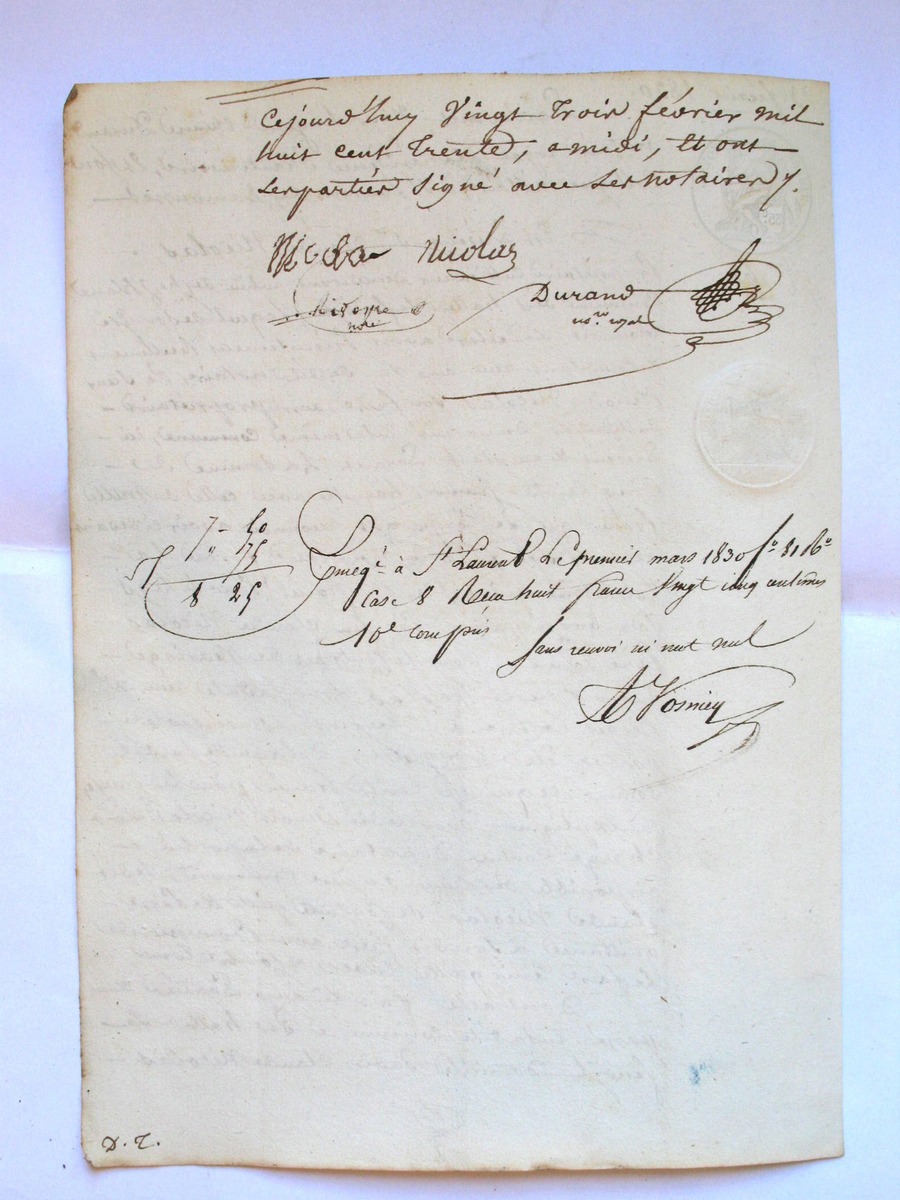 Cejourd'huy Vingt trois février mil
huit cent trente, a midi, Et ont
Les parties signé avec Les notaires
Nicolas
Durand
no.re royal
no.re
7 - 50
" 75
8 25
Enregé à St Laurent Le premier mars 1830 fo 81 Ro
Case 8 Reçu huit francs Vingt cinq centimes
10e compris
Sans renvoi ni mot nul
D. T.